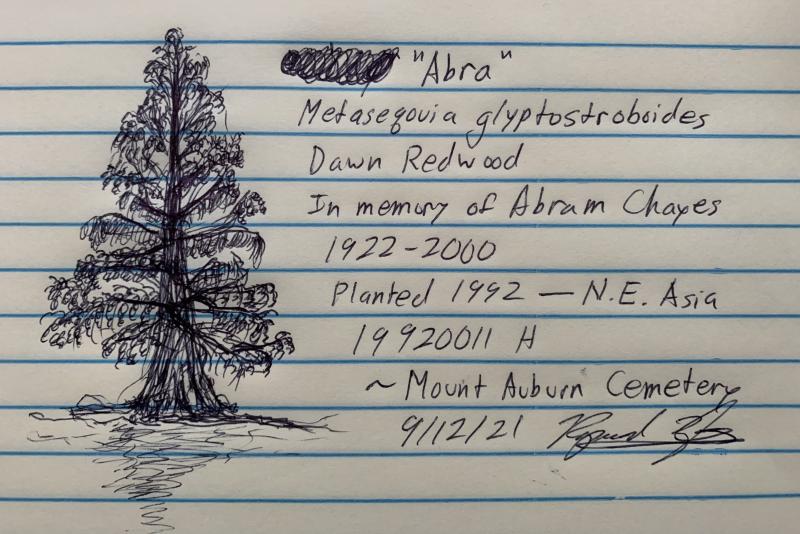 "Abra"
Metasequia glyptostroboides
Dawn Redwood
In memory of Abram Chayes
1922-2000
Planted 1992 — N.E. Asia
19920011 H
~ Mount Auburn Cemetery
9/12/21